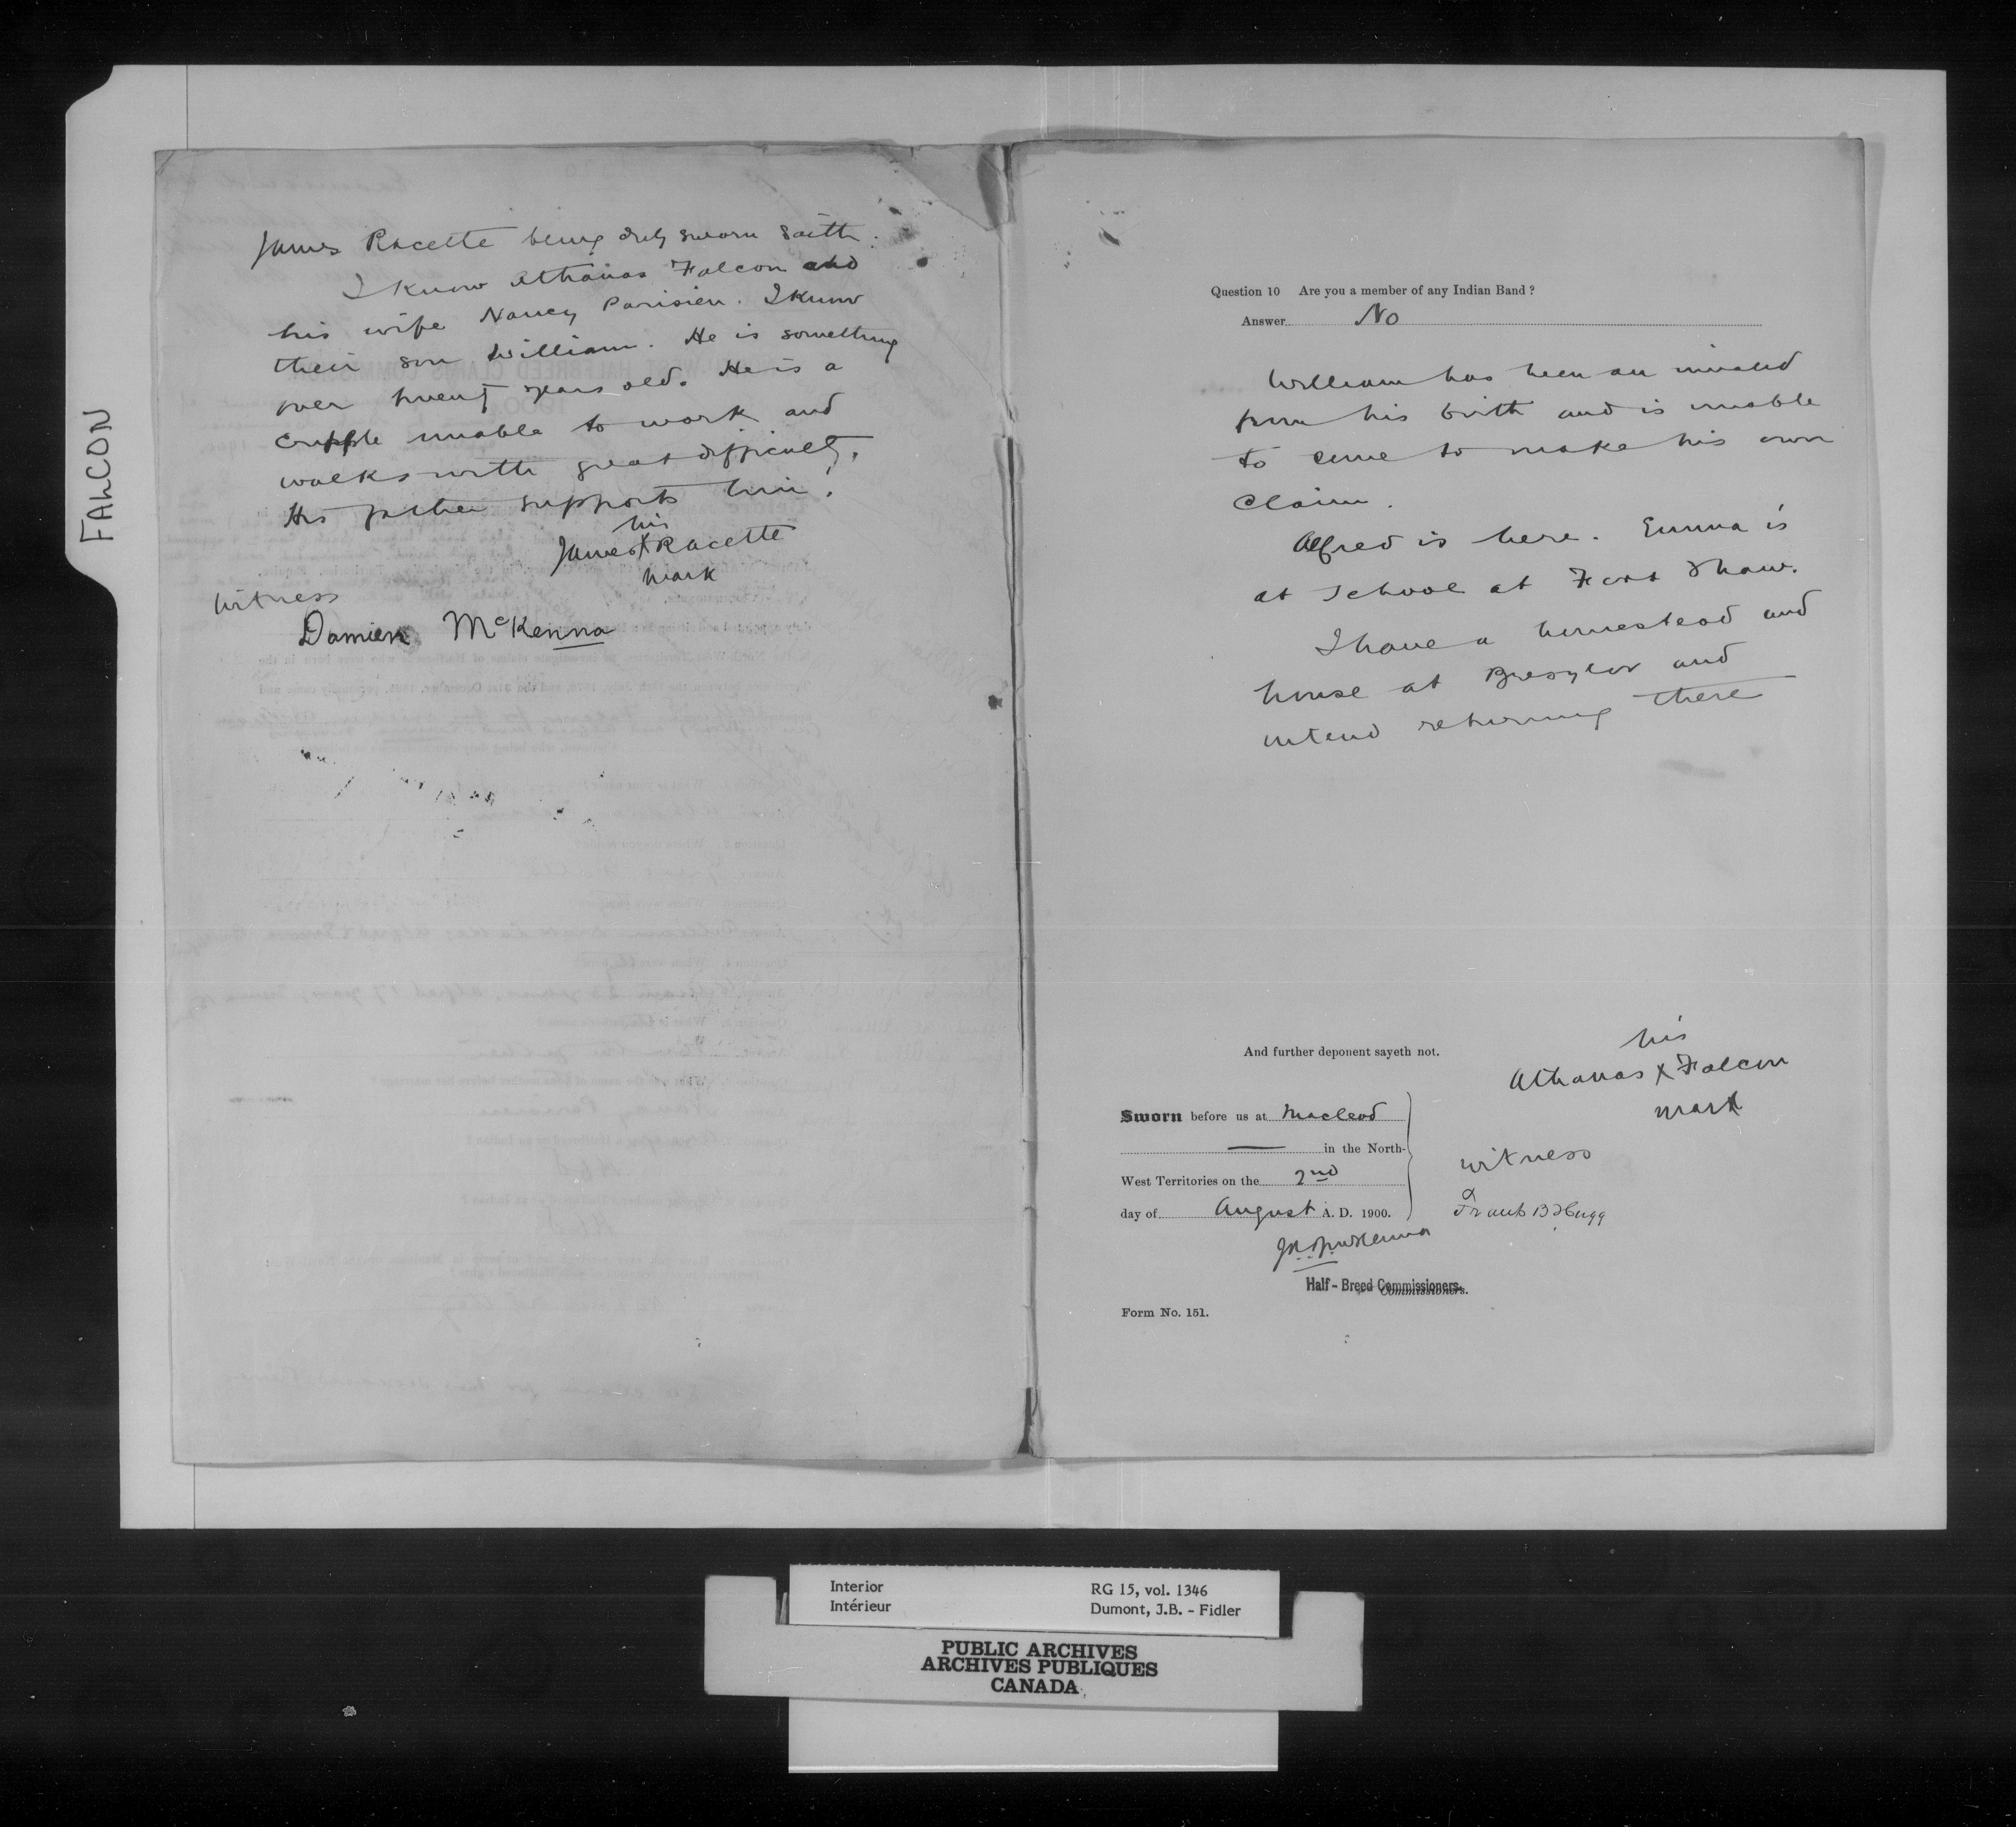 FALCON
James Racette being duly sworn saith:
I know Athanas Falcon and
his wife Nancy Parisien. I know
their son William. He is something
over twenty years old. He is a
cripple unable to work and
walks with great difficulty.
His father supports him.
his
James X Racette
mark
Witness
Damien McKenna
Question 10 Are you a member of any Indian Band?
Answer No
William has been an invalid
from his birth and is unable
to come to make his own
claim.
Alfred is here. Emma is
at School at Fort Shaw.
I have a homestead and
house at and
intend returning there
And further deponent sayeth not.
his
Athanas X Falcon
mark
Sworn before us at Macleod
— in the North-
West Territories on the 2nd
day of August A. D. 1900.
witness
Frank B
McKenna
Half-Breed Commissioners.
Commissioners.
Form No. 151.
Interior
Intérieur
RG 15, vol. 1346
Dumont, J.B. - Fidler
PUBLIC ARCHIVES
ARCHIVES PUBLIQUES
CANADA